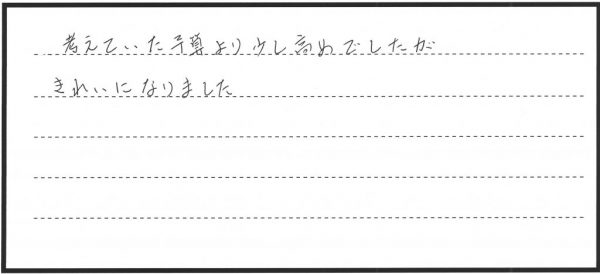 考えていた予算より少し高めでしたが
きれいになりました